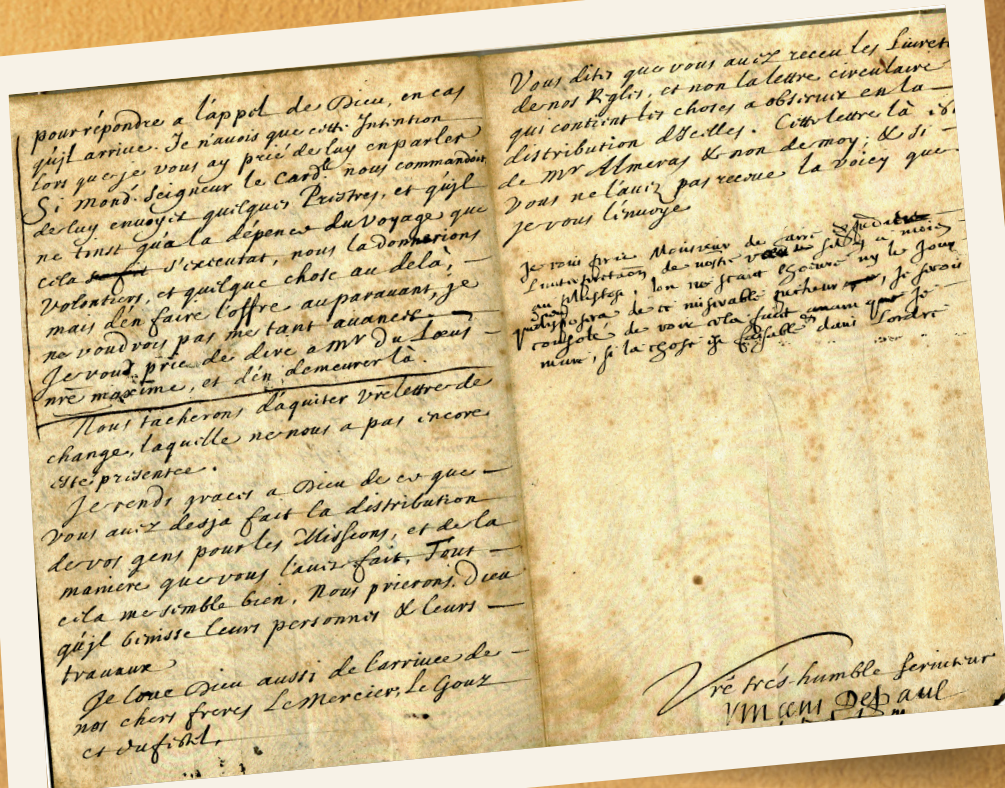 pour répondre a l'appel de Dieu, en cas
qu'jl arriue. Je n'auois que cette Intention
lors que je vous ay prié de luy en parler
Si mond. Seigneur le Card.l nous commandoit
de luy enuoyer quelques Prestres, et qu'jl
ne tinst qu'a la dépence du voyage que
cela s'executat, nous la donnerions
volontiers, et quelque chose au delà;
mais d'en faire l'offre auparauant, je
ne voudrois pas me tant auancer.
Je vous prie de dire a mr du
nr̃e maxime, et d'en demeurer là.
Nous tacherons d'aquiter vr̃e lettre de
change, laquelle ne nous a pas encore
esté présentée.
Je rends graces a Dieu de ce que
vous auez desja fait la distribution
de vos gens pour les Missions, et de la
maniere que vous l'auez fait, Tout
cela me semble bien. Nous prierons Dieu
qu'jl benisse leurs personnes & leurs
trauaux
Je loue Dieu aussi de l'arriuee de
nos chers freres Le Mercier, Le Gouz
et
Vous dites que vous auez receu les Liurets
de nos Regles, et non la lettre circulaire
qui contient les choses a obseruer en la
distribution d'Jceilles. Cette lettre là est
de mr Almeras & non de moy; & si
vous ne l'auez pas receue la voicy que
je vous l'enuoye
Je vous prie Monsieur de
de nostre a moins
lon ne scait l'heure ny le Jour
disposera de ce miserable pecheur, je serois
consolé de voir cela fait auant que je
meure, si la chose est faisable dans l'ordre
Vr̃e trés-humble seruiteur
Vincent Depaul